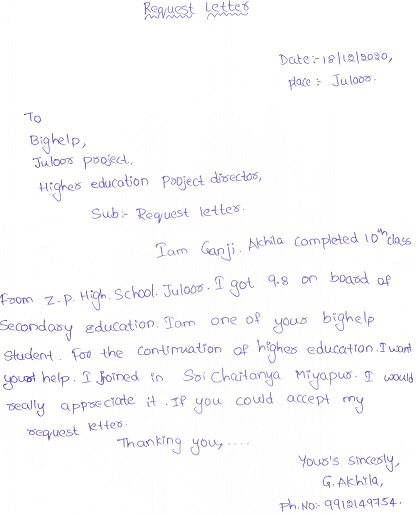 Request Letter
Date:- 18/12/2020,
place:- Juloor.
To
Bighelp,
Juloor project,
Higher education Project director,
Sub:- Request letter.
Iam Ganji. Akhila completed 10th class
From Z.P. High. School. Juloor. I got 9.8 on board of
Secondary education. Iam one of your bighelp
Student. For the continuation of higher education. I want
your help. I joined in Sri Chaitanya Miyapur. I would
really appreciate it. If you could accept my
request letter.
Thanking you,....
Your's Sincerly,
G. Akhila,
Ph.No:- 9912149754.